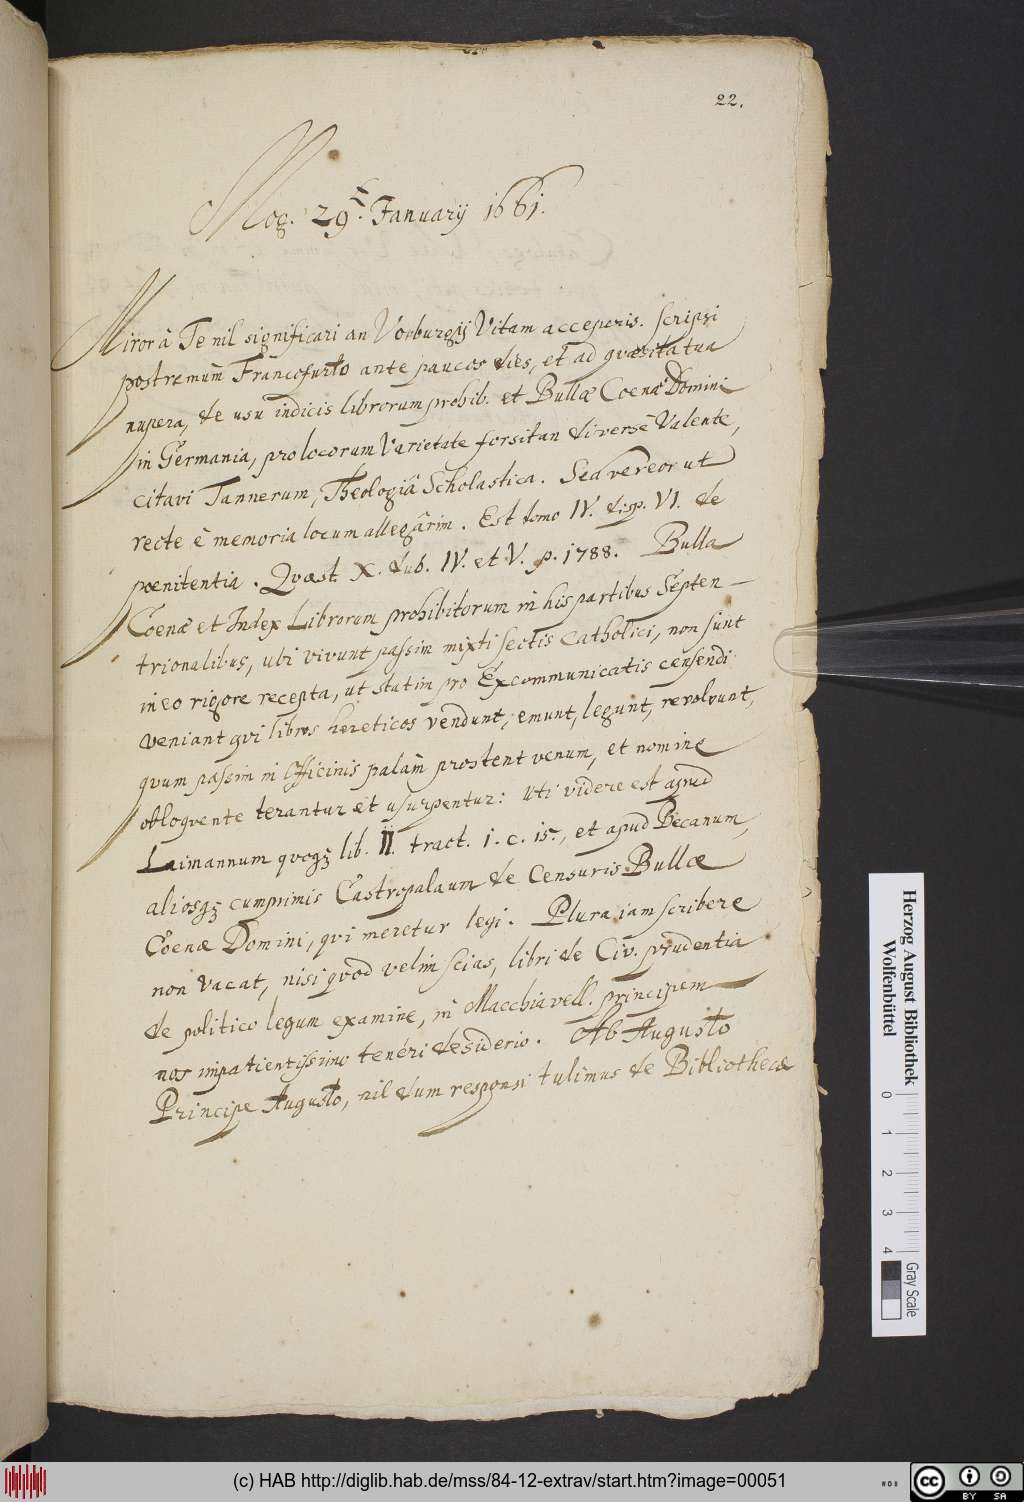 22.
Mog. 29. Ianuarij 1661.
Miror à Te nil significari an Vorburgij Vitam acceperis. Scripsi
postremùm Francofurto ante paucos dies, et ad quæsita tua
nupera, de usu indicis librorum prohib. et Bullæ Coenæ Domini
in Germania, pro locorum Varietate forsitan diversè Valente,
citavi Tannerum, Theologiâ Scholastica. Sed vereor ut
recte è memoria locum allegârim. Est tomo IV. disp. VI. de
poenitentia. Quæst X. dub. IV. et V. p. 1788. Bulla
Coenæ et Index Librorum prohibitorum in his partibus Septen-
trionalibus, ubi vivunt passim mixti sectis Catholici, non sunt
in eo rigore recepta, ut statim pro Excommunicatis censendi
veniant qvi libros hæreticos vendunt, emunt, legunt, revolvunt,
qvum passim in Officinis palàm prostent venum, et nomine
obloqvente terantur et usurpentur: Uti videre est apud
Laimannum qvoqꝫ lib. II. tract. 1. c. 15., et apud Becanum,
aliosqꝫ cumprimis Castropalaum de Censuris Bullæ
Coenæ Domini, qvi meretur legi. Plura iam scribere
non vacat, nisi qvod velim scias, libri de Civ. prudentia
de politico legum examine, in Macchiavell. principem
nos impatientissimo tenéri desiderio. Ab Augusto
Principe Augusto, nil dum responsi tulimus de Bibliothecæ
Herzog August Bibliothek
Wolfenbüttel
0 1 2 3 4
Gray Scale
(c) HAB http://diglib.hab.de/mss/84-12-extrav/start.htm?image=00051
cc BY SA